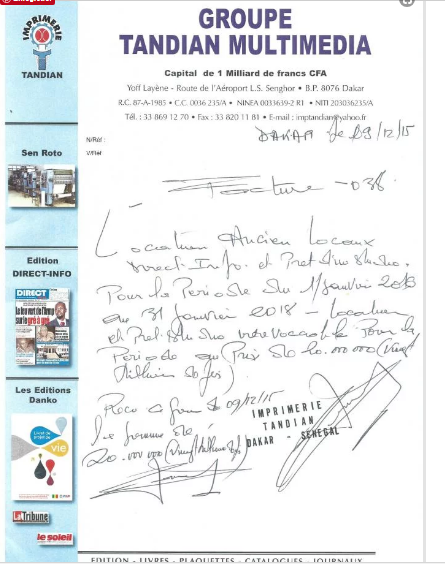 IMPRIMERIE
TANDIAN
GROUPE
TANDIAN MULTIMEDIA
Capital de 1 Milliard de francs CFA
Yoff Layène - Route de l'Aéroport L.S. Senghor • B.P. 8076 Dakar
R.C. 87-A-1985 • C.C. 0036 235/A • NINEA 0033639-2 R1 • NITI 203036235/A
Tél. : 33 869 12 70 • Fax : 33 820 11 81 • E-mail : imptandian@yahoo.fr
N/Réf :
V/Réf
DAKAR le 09/12/15
Facture - 038
Sen Roto
Location Ancien Locaux
Direct-Info. et Pret Du Studio.
Pour la Periode du 1 Janvier 2013
au 31 Janvier 2018 - Location
et Pret Studio Pour la
Periode au Prix de 20.000.000 (Vingt
Million de frs)
Edition
DIRECT-INFO
DIRECT
Les Editions
Danko
Reçu ce jour le 09/12/15
la somme de
20.000.000 (Vingt Million frs)
IMPRIMERIE
TANDIAN
DAKAR - SENEGAL
vie
La Tribune
le soleil
EDITION - LIVRES - PLAQUETTES - CATALOGUES - JOURNAUX